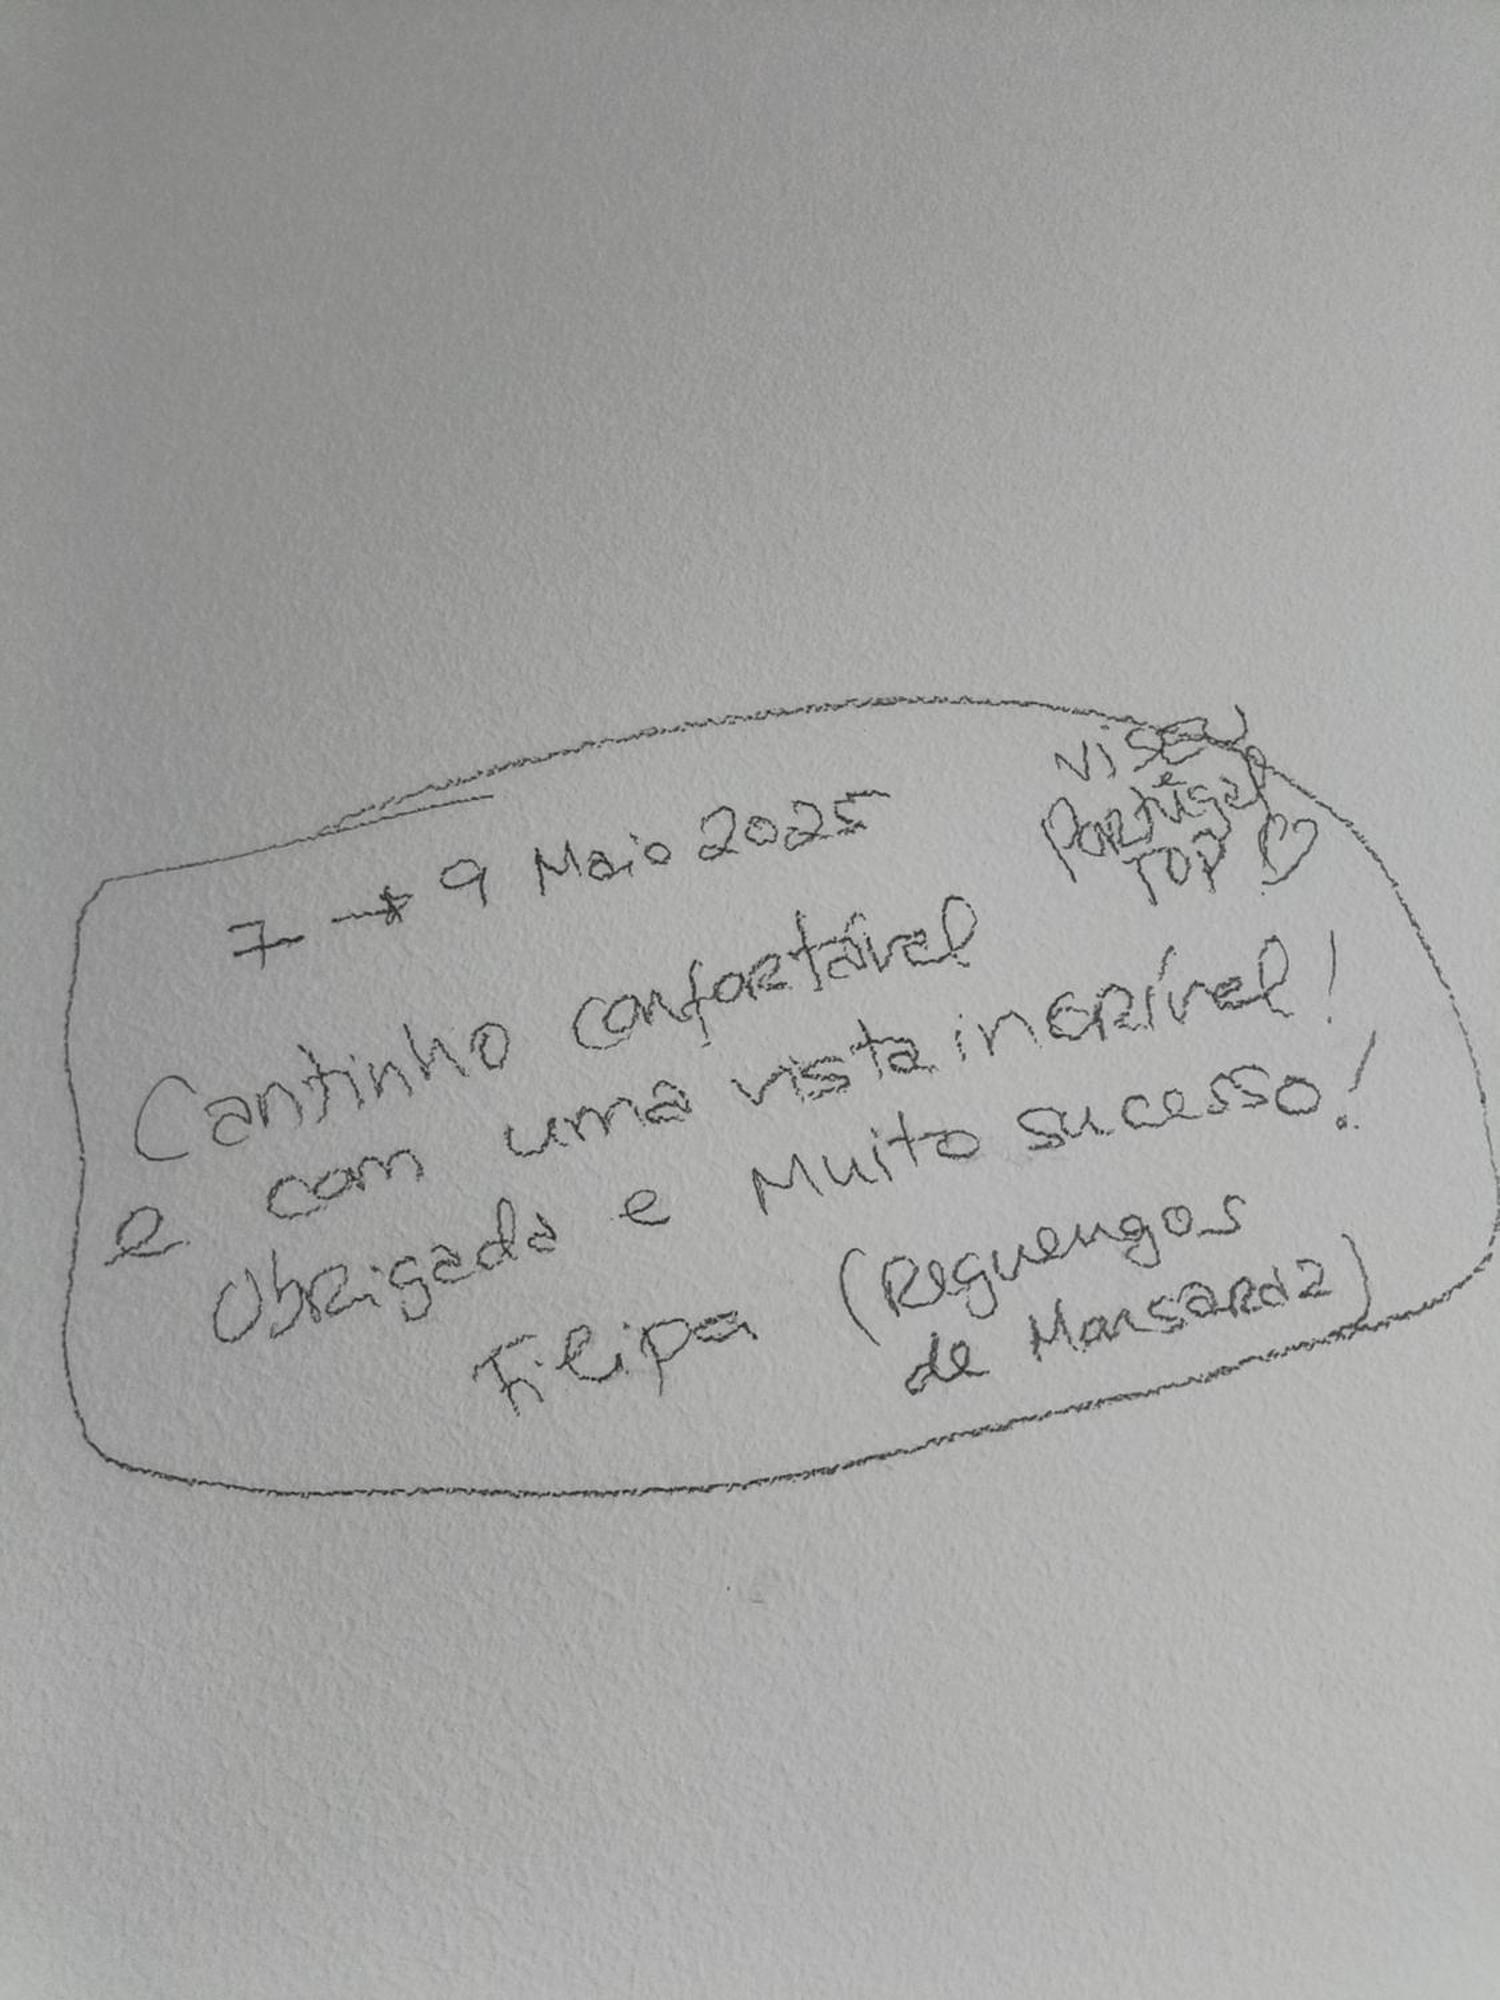 7 → 9 Maio 2025
Viseu
é
Portugal
TOP ♡
Cantinho confortável
e com uma vista incrível!
Obrigada e Muito sucesso!
Filipa (Reguengos
de Monsaraz)